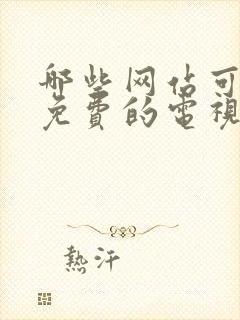 哪些网佔可
免費的電視
熱汗